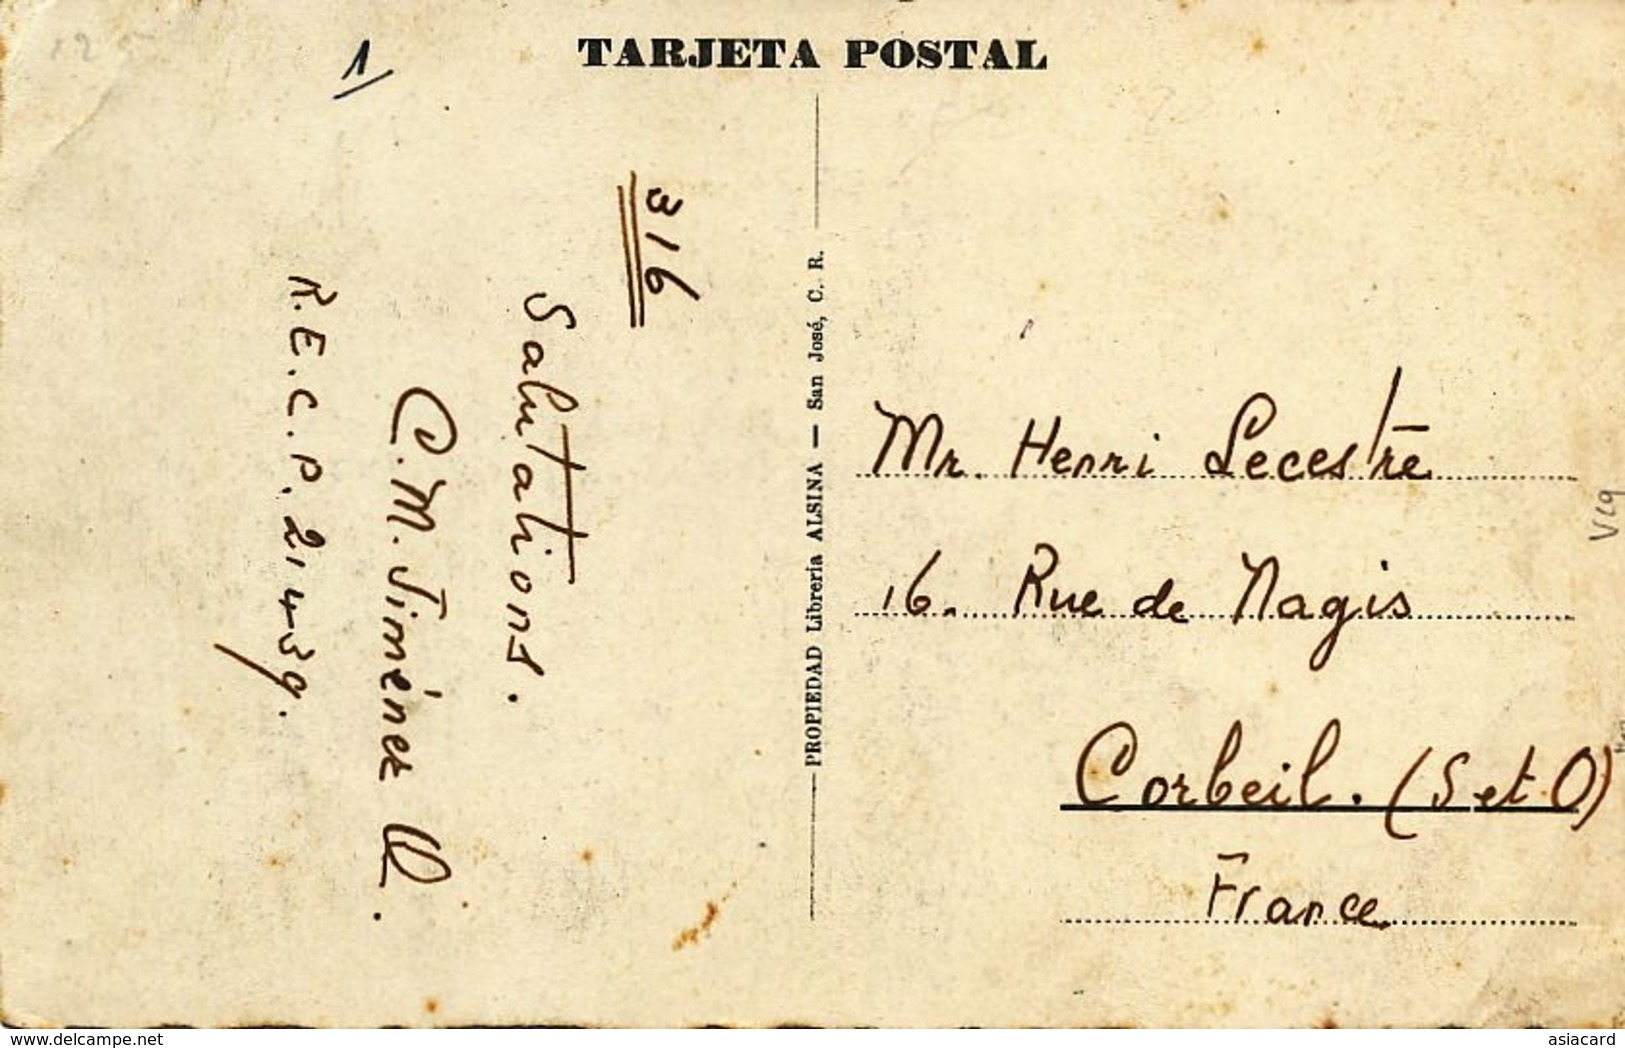 TARJETA POSTAL
1/
316
Salutations.
C. M. Jiménez Q.
R.E.C.P. 21-4-39.
PROPIEDAD Librería ALSINA — San José, C. R.
Mr. Henri Lecestre
16. Rue de Nagis
Corbeil. (S et O)
France
delcampe.net
asiacard